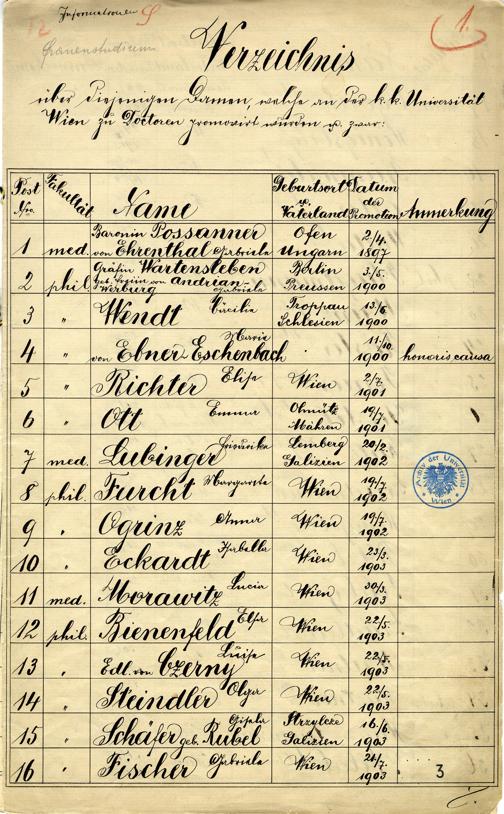 Informationen S
1.
Frauenstudium
Verzeichnis
über diejenigen Damen, welche an der k. k. Universität
Wien zu Doctoren promovirt wurden u. zwar:
Post Nro. Fakultät Name Geburtsort u. Vaterland Datum der Promotion Anmerkung
1 med. Baronin Possanner von Ehrenthal Gabriele Ofen Ungarn 2/4. 1897
2 phil. Gräfin Wartensleben geb. Freiin von Andrian-Werburg Gabriele Berlin Preussen 3/5. 1900
3 " Wendt Cäcilie Troppau Schlesien 13/6. 1900
4 " von Ebner Eschenbach Marie 11/10. 1900 honoris causa
5 " Richter Elise Wien 2/7. 1901
6 " Ott Emma Olmütz Mähren 19/7. 1901
7 med. Lubinger Friederike Lemberg Galizien 20/2. 1902
8 phil. Furcht Margarete Wien 19/7. 1902
9 " Ogrinz Anna Wien 19/7. 1902
10 " Eckardt Isabella Wien 23/3. 1903
11 med. Morawitz Lucia Wien 30/3. 1903
12 phil. Bienenfeld Elsa Wien 22/5. 1903
13 " Edl. von Czerny Luise Wien 22/5. 1903
14 " Steindler Olga Wien 22/5. 1903
15 " Schäfer geb. Rubel Gisela Galizien 16/6. 1903
16 " Fischer Gabriele Wien 21/7. 1903
Archiv der Universität Wien
3